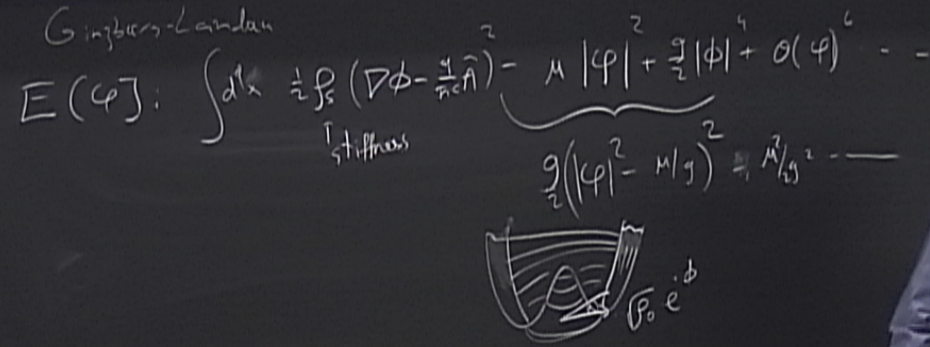 Ginzburg-Landau
E(φ): ∫dᵈx ½ρₛ(∇ϕ - q/ħc A⃗)² - μ|φ|² + g/2|ϕ|⁴ + O(φ)⁶ - -
↑ stiffness
g/2(|φ|² - μ/g)² - μ²/2g² - —
√ρ₀ e^{iϕ}